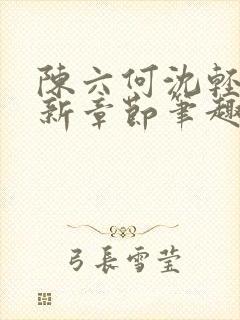 陳六何沈輕
新章節筆趣
弓長雪莹